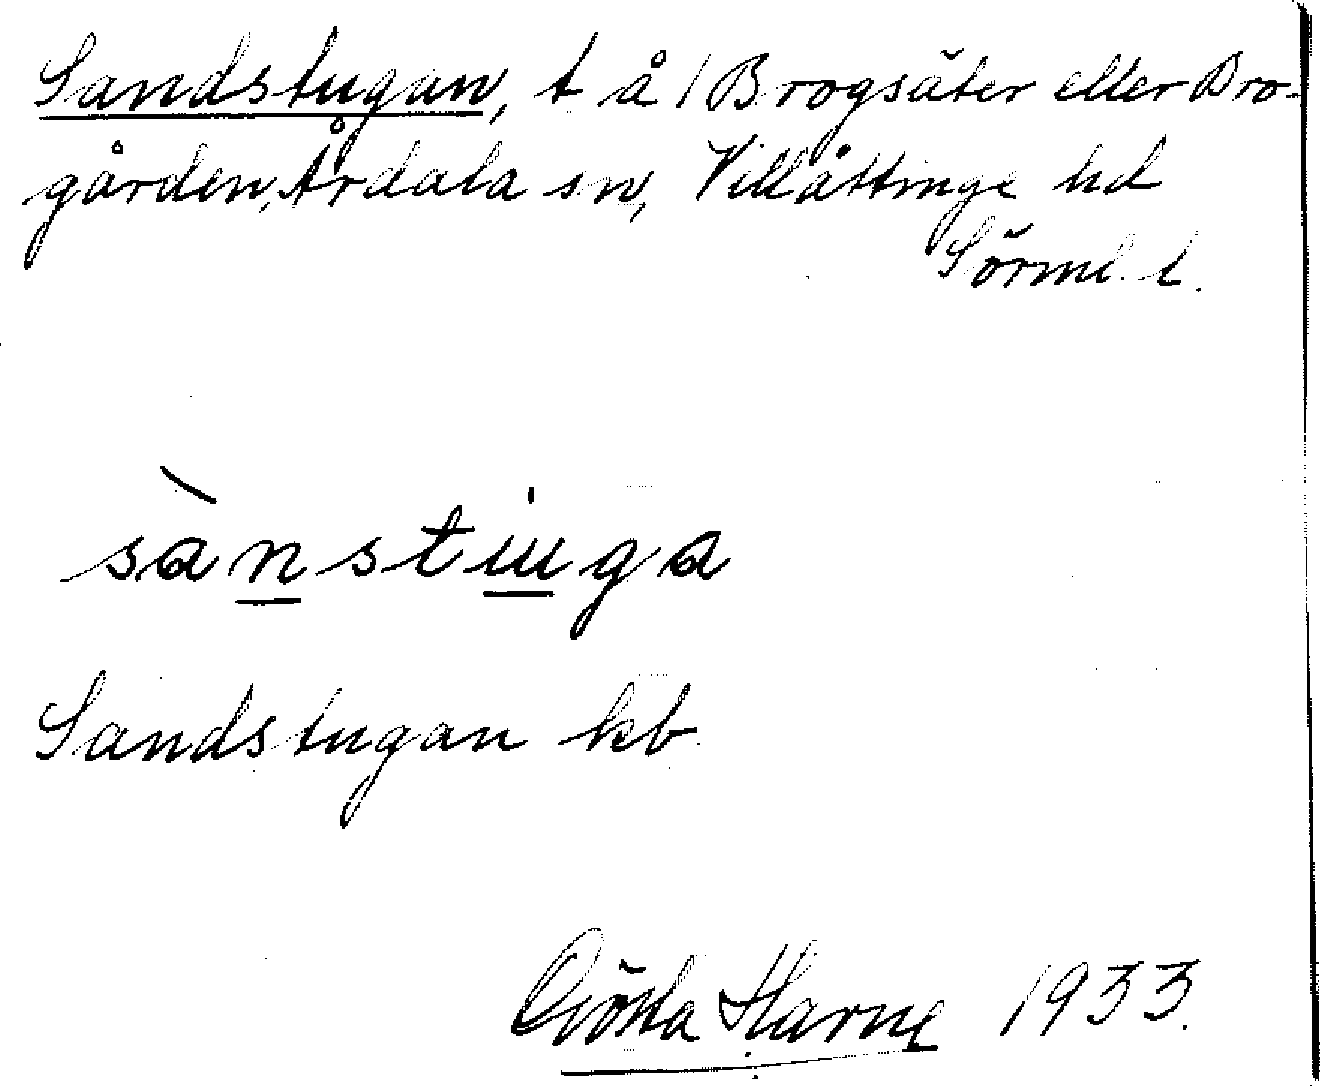 Sandstugan, t å 1 Brogsäter eller Bro-
gården, Årdala sn, Villåttinge hd
Sörml. l.
sànstuga
Sandstugan kb
Gösta Harne 1933.